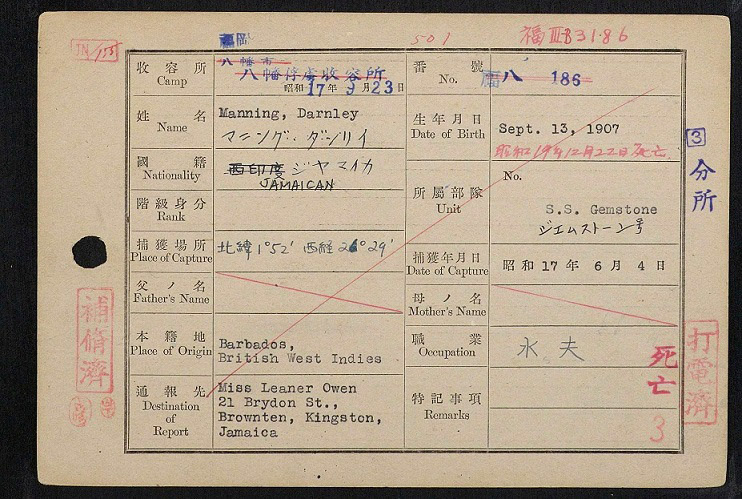 福岡
501
福Ⅲ-B 31・86
收容所
Camp
八幡市
八幡俘虜收容所
昭和17年9月23日
番號
No.
八 186
姓名
Name
Manning, Darnley
マニング・ダンリイ
生年月日
Date of Birth
Sept. 13, 1907
昭和19年12月22日死亡
國籍
Nationality
西印度 ジヤマイカ
JAMAICAN
階級身分
Rank
所屬部隊
Unit
No.
S.S. Gemstone
ジエムストーン号
3
分所
捕獲場所
Place of Capture
北緯1°52' 西経26°29'
捕獲年月日
Date of Capture
昭和17年6月4日
父ノ名
Father's Name
母ノ名
Mother's Name
本籍地
Place of Origin
Barbados,
British West Indies
職業
Occupation
水夫
通報先
Destination
of
Report
Miss Leaner Owen
21 Brydon St.,
Brownten, Kingston,
Jamaica
特記事項
Remarks
死亡
3
補脩濟
打電濟